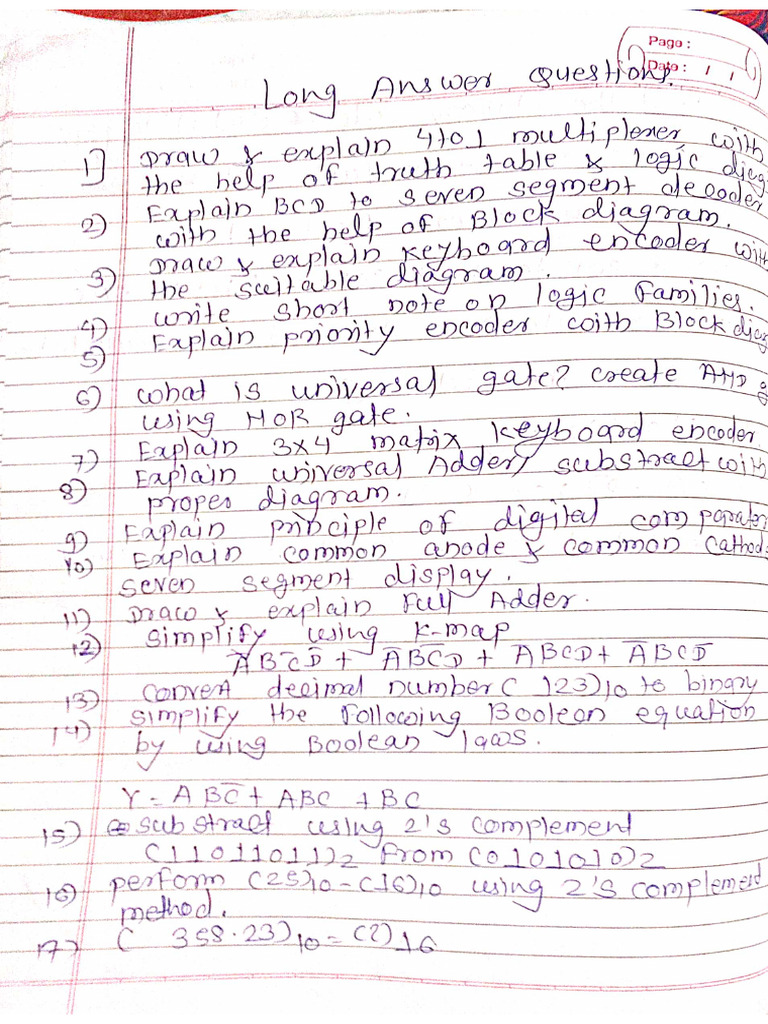 Page :
Date : / /
Long Answer Questions.
1] Draw & explain 4 to 1 multiplexer with
the help of truth table & logic diag
2) Explain BCD to seven segment decoder
with the help of Block diagram.
3) Draw & explain keyboard encoder with
the suitable diagram.
4) write short note on logic families.
5) Explain priority encoder with Block diag
6) what is universal gate? create AND g
using NOR gate.
7) Explain 3x4 matrix keyboard encoder
8) Explain universal Adder/ substract with
proper diagram.
9) Explain principle of digital comparator
10) Explain common anode & common cathod
seven segment display.
11) Draw & explain Full Adder.
12) simplify using K-map
A̅BC̅D̅ + A̅BC̅D + A̅BCD + A̅BCD̅
13) convert decimal number (123)10 to binary
14) simplify the following Boolean equation
by using Boolean laws.
Y = ABC̅ + ABC + BC
15) substract using 2's complement
(11011011)2 from (0101010)2
16) perform (25)10 - (16)10 using 2's complement
method.
17) (358.23)10 = (?)16